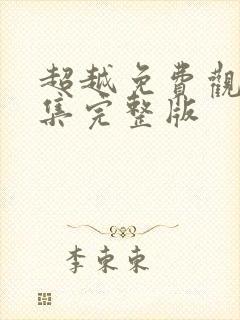 超越免費觀
集完整版
李東東